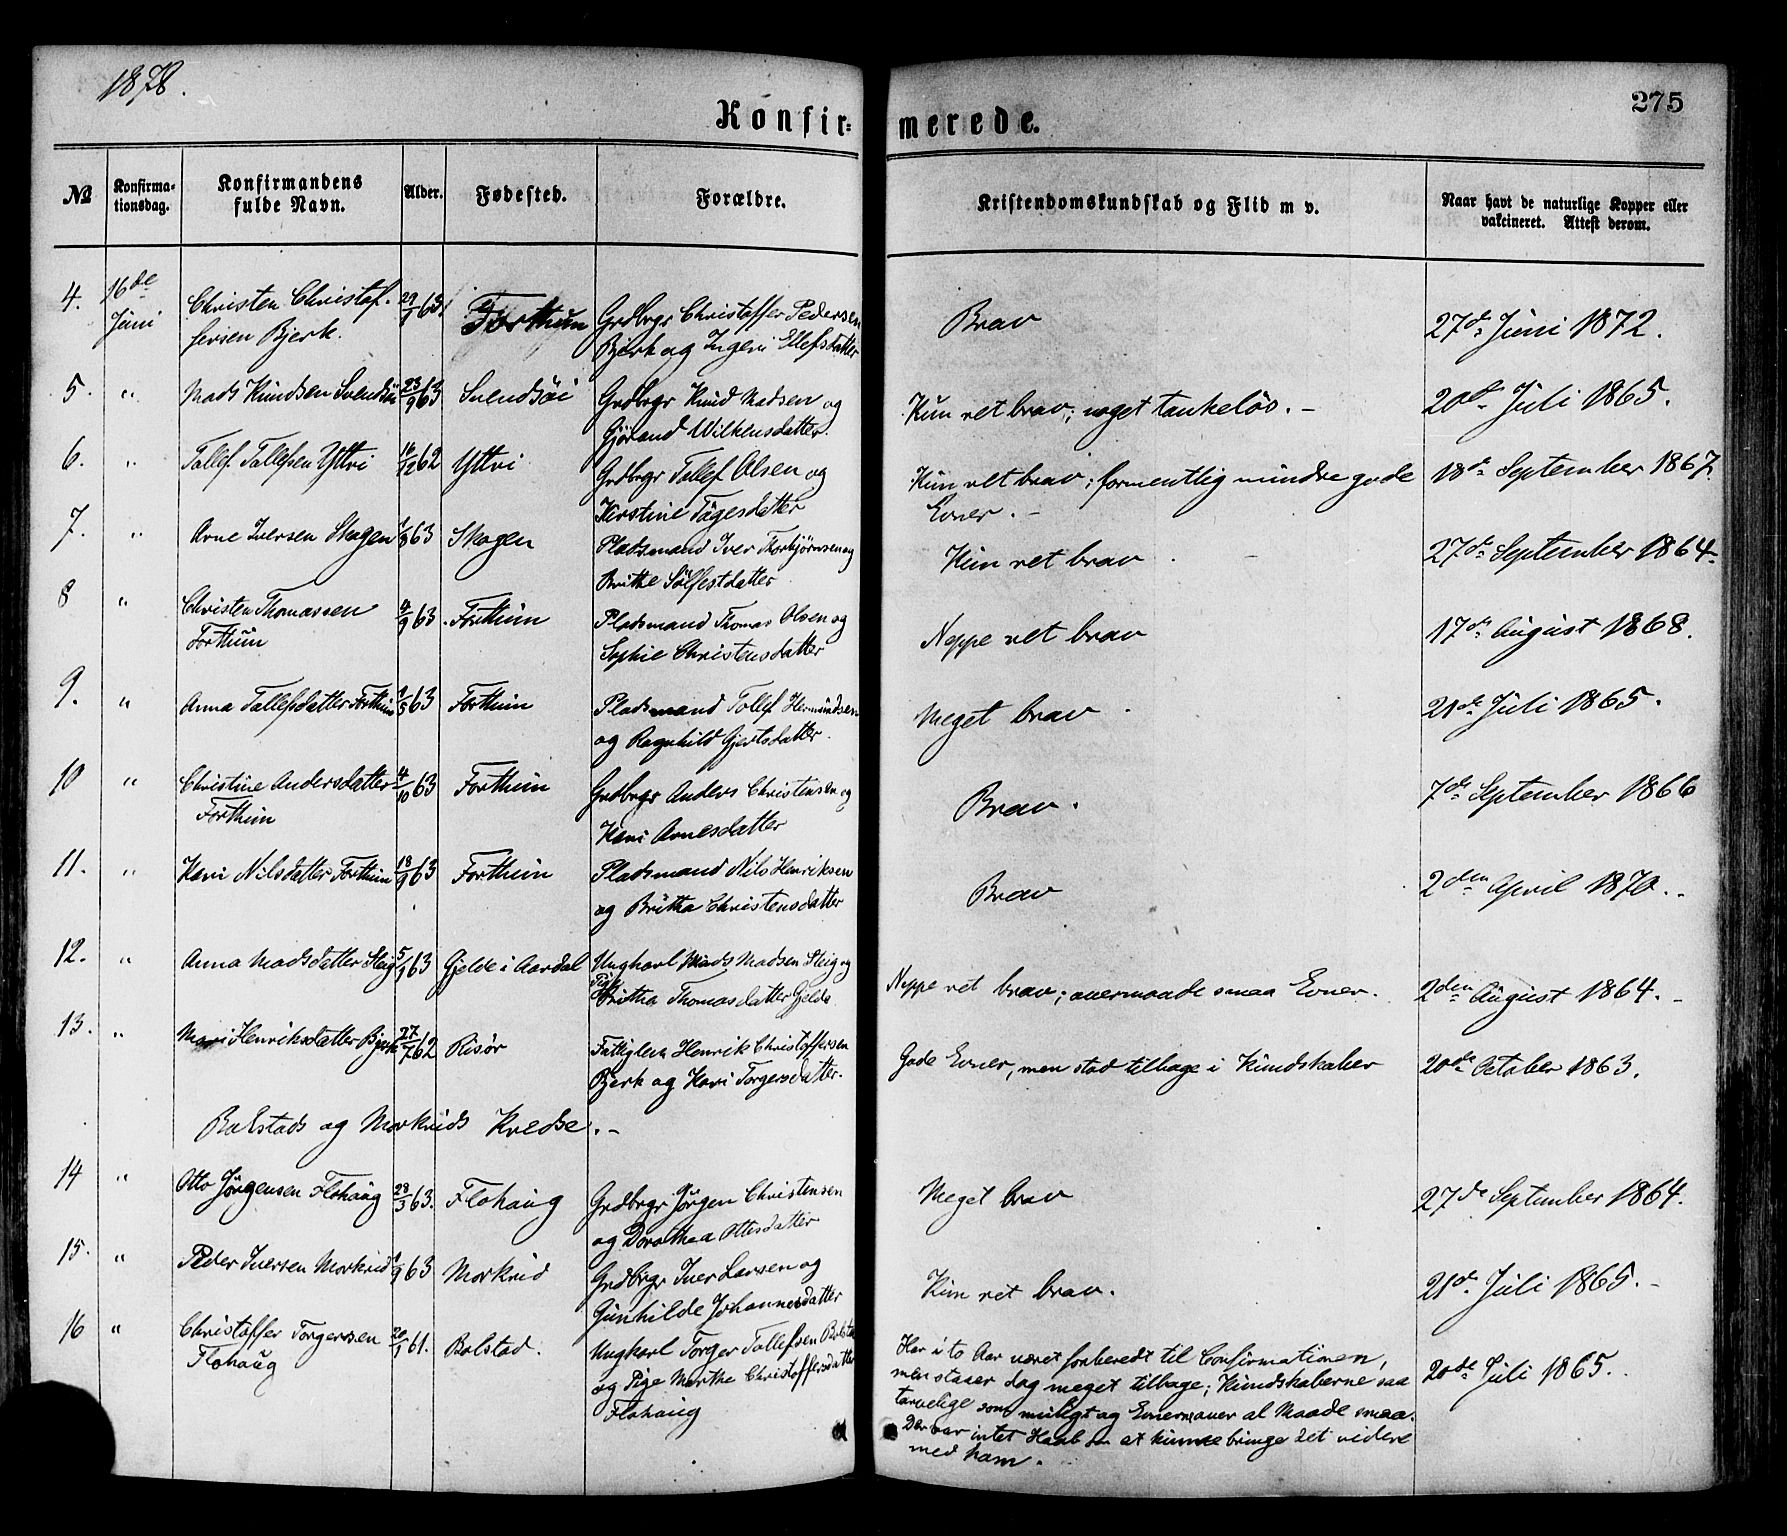 1878.
275
Konfir=
merede.
№
Konfirma-
tionsdag.
Konfirmandens
fulde Navn.
Alder.
Fødested.
Forældre.
Kristendomskundskab og Flid m v.
Naar havt de naturlige Kopper eller
vakcineret. Attest derom.
4. 16de Christen Christof- 29/1 63. Forthun Grdbrgr Christoffer Pedersen Brav 27de Juni 1872.
Juni fersen Bjerk. Bjerk og Ingeri Ellefsdatter
5. " Mads Knudsen Svendsöi 23/9 63 Svendsöi Grdbrgr Knud Madsen og Kun ret brav; noget tankelös. - 20de Juli 1865.
Gjörand Wilkensdatter.
6. " Tollef Tollefsen Yttri 16/12 62 Yttri Grdbrgr Tollef Olsen og Kun ret brav; formentlig mindre gode 18de September 1867.
Kerstine Tågesdatter Evner. -
7. " Arne Iversen Skogen 1/8 63 Skogen Pladsmand Iver Thorbjörnsen og Kun ret brav 27de September 1864.
Brithe Sölfestdatter
8 " Christen Thomassen 4/9 63. Forthun Pladsmand Thomas Olsen og Neppe ret brav 17de August 1868.
Forthun Sophie Christensdatter
9. " Anna Tollefsdatter Forthun 1/5 63 Forthun Pladsmand Tollef Hermundsen Meget brav 21de Juli 1865.
og Ragnhild Gjertsdatter.
10 " Christine Andersdatter 4/10 63 Forthun Grdbrgr Anders Christensen og Brav. 7de September 1866
Forthun Kari Arnesdatter
11. " Kari Nilsdatter Forthun 18/9 63 Forthun Pladsmand Nils Henriksen Brav 2den April 1870. -
og Britha Christensdatter
12. " Anna Madsdatter Steig 5/1 63 Gjelde i Aardal Ungkarl Mads Madsen Steig og Neppe ret brav; overmaade smaa Evner. 2den August 1864. -
Pige Britha Thomasdatter Gjelde
13. " Mari Henriksdatter Bjerk 27/7 62 Risør Fattiglem Henrik Christoffersen Gode Evner, men stod tilbage i Kundskaber 20de October 1863.
Bjerk og Kari Torgersdatter.
Bolstads og Morkrids Kredse. -
14 " Otto Jörgensen Flohaug 28/3 63. Flohaug Grdbrgr Jörgen Christensen Meget brav 27de September 1864.
og Dorothea Ottesdatter
15. " Peder Iversen Morkrid 1/9 63 Morkrid Grdbrgr Iver Larsen og Kun ret brav. 21de Juli 1865. -
Gunhilde Johannesdatter
16 " Christoffer Torgersen 20/1 61. Bolstad. Ungkarl Torger Tollefsen Bolstad Har i to Aar været forberedt til Confirmationen, 20de Juli 1865.
Flohaug og Pige Marthe Christoffersdatter men staaer dog meget tilbage; Kundskaberne saa
Flohaug tarvelige som muligt og Evnerne over al Maade smaa.
Der var intet Haab om at kunne bringe det videre
med ham.